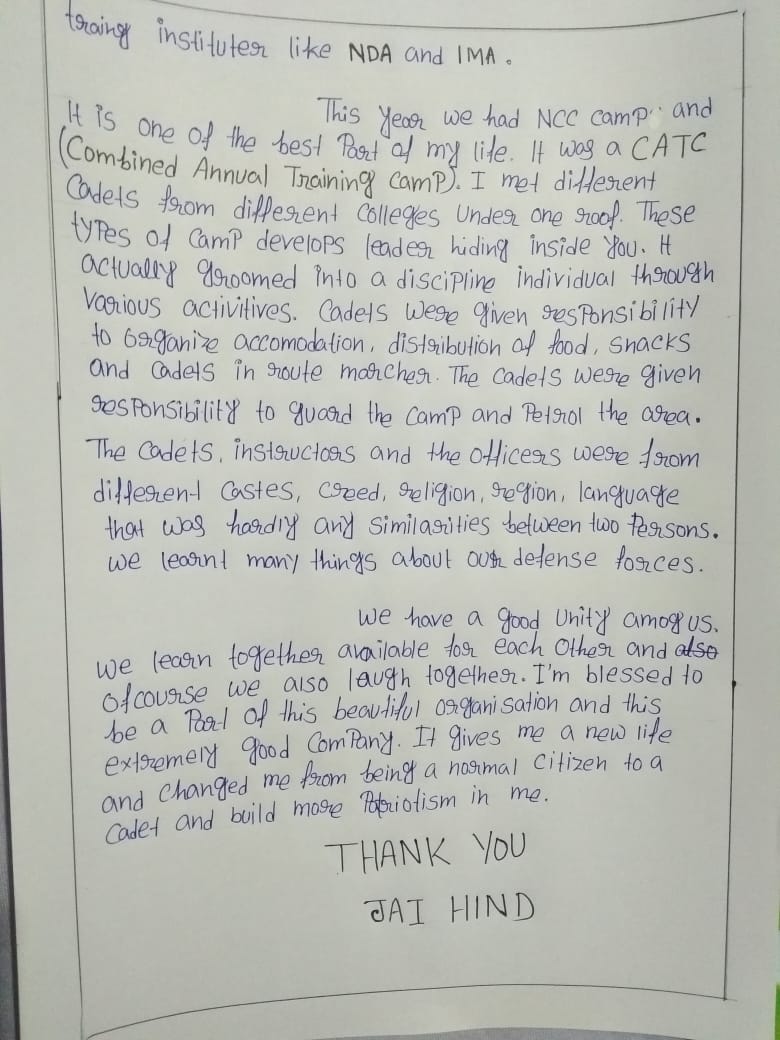 traing instituter like NDA and IMA.
This year we had NCC camp and
It is one of the best Part of my life. It was a CATC
(Combined Annual Training Camp). I met different
Cadets from different Colleges Under one roof. These
types of Camp develops leader hiding inside You. It
actually groomed into a discipline individual through
Various activitives. Cadets were given responsibility
to organize accomodation, distribution of food, snacks
and cadets in route marcher. The cadets were given
responsibility to guard the camp and Petrol the area.
The cadets, instructors and the officers were from
different castes, creed, religion, region, language
that was hardly any similarities between two Persons.
we learnt many things about our defense forces.
we have a good Unity amog us.
we learn together available for each other and also
Ofcourse we also laugh together. I'm blessed to
be a Part of this beautiful organisation and this
extremely good Company. It gives me a new life
and changed me from being a normal citizen to a
Cadet and build more Patriotism in me.
THANK YOU
JAI HIND